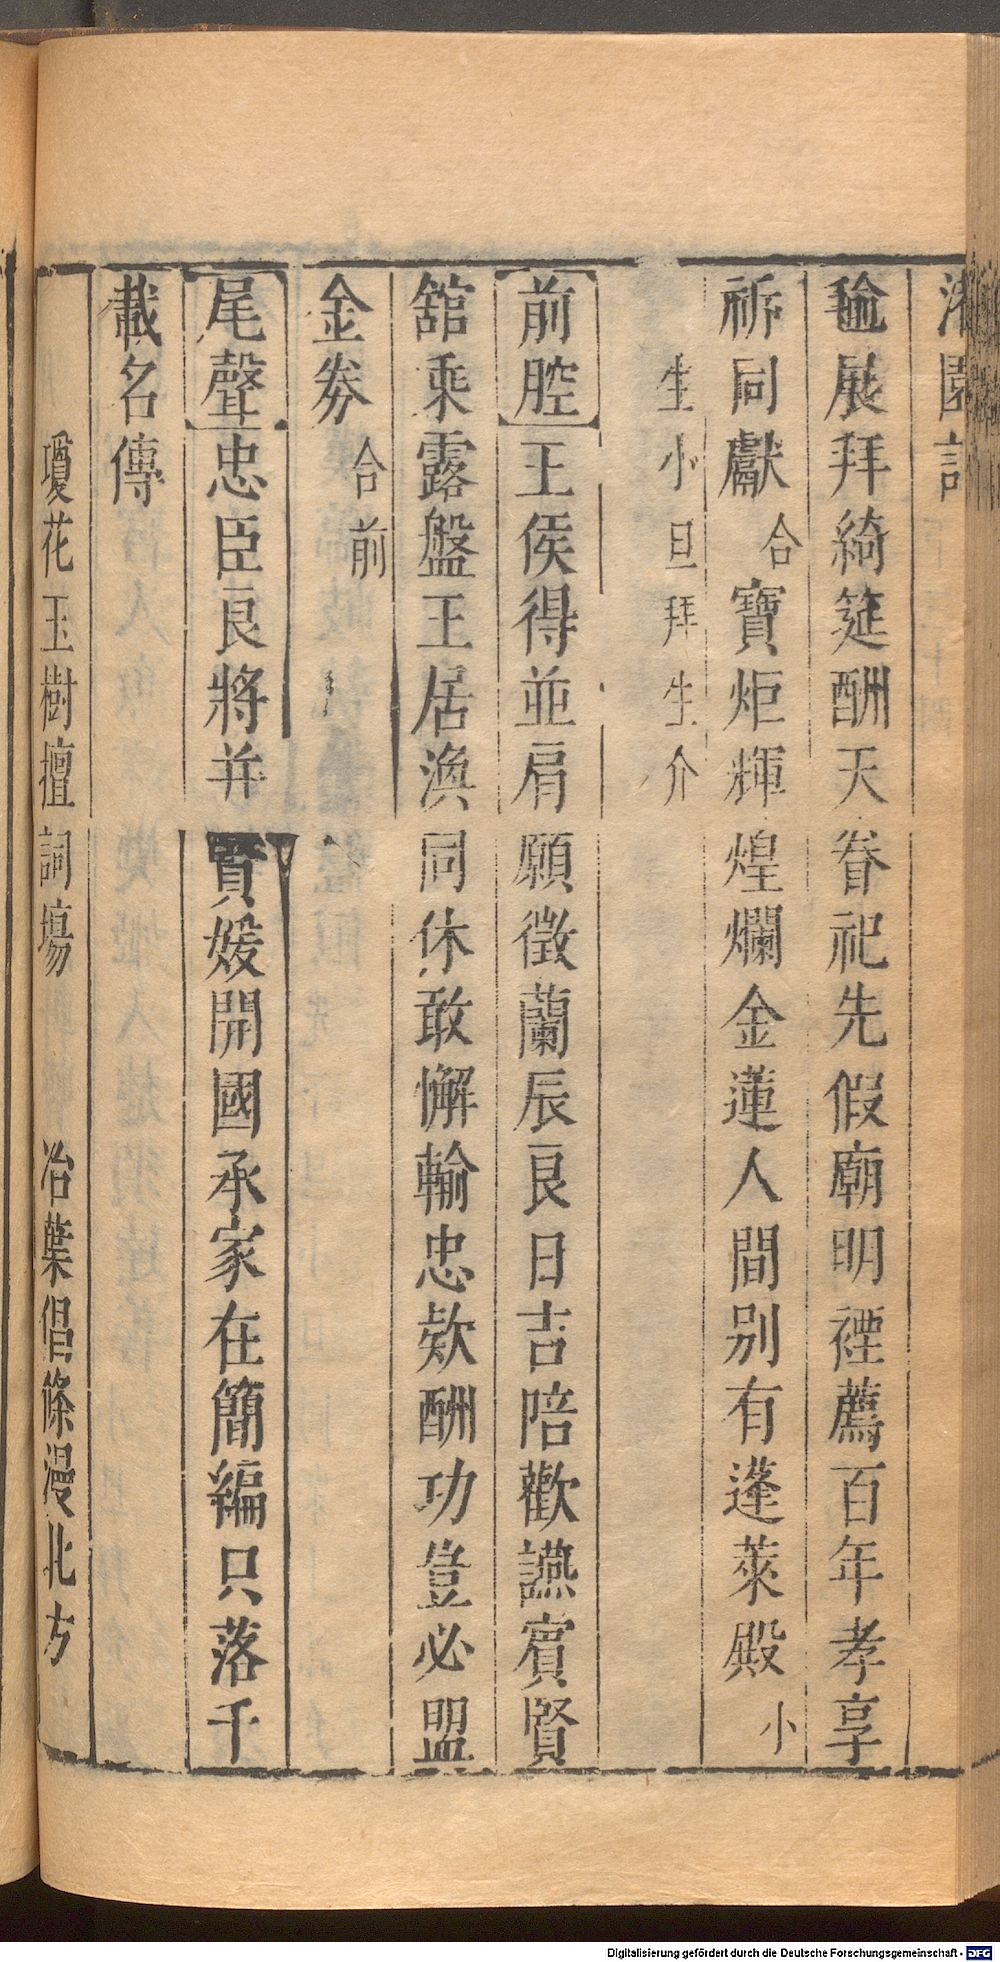 園記
展拜綺筵酬天眷祀先假廟明禋薦百年孝享
祈同獻合寶炬輝煌爛金蓮人間別有蓬萊殿小
生小旦拜生介
前腔王侯得並肩願徵蘭辰良日吉陪歡讌賓賢
舘乘露盤王居渙同休敢懈輸忠欵酬功豈必盟
金券合前
尾聲忠臣良將并賢媛開國承家在簡編只落千
載名傳
瓊花玉樹擅詞場 冶葉倡條漫北方
Digitalisierung gefördert durch die Deutsche Forschungsgemeinschaft - DFG